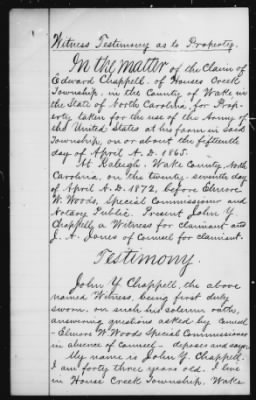 Witness Testimony as to Property.
In the matter of the Claim of
Edward Chappell, of Houses Creek
Township, in the County of Wake in
the State of North Carolina for Prop-
erty taken for the use of the Army of
the United States at his farm in said
Township, on or about the fifteenth
day of April A. D. 1865.
At Raleigh, Wake County, North
Carolina, on the twenty seventh day
of April A. D. 1872, before Elmore
W. Woods, Special Commissioner and
Notary Public. Present John Y.
Chappell, a Witness for claimant and
J. A. Jones of Counsel for claimant.
Testimony.
John Y. Chappell, the above
named Witness, being first duly
sworn, on such his solemn oath,
answering questions asked by
Elmore W. Woods Special Commissioner
in absence of Counsel - deposes and says -
My name is John Y. Chappell.
I am forty three years old. I live
in House Creek Township, Wake